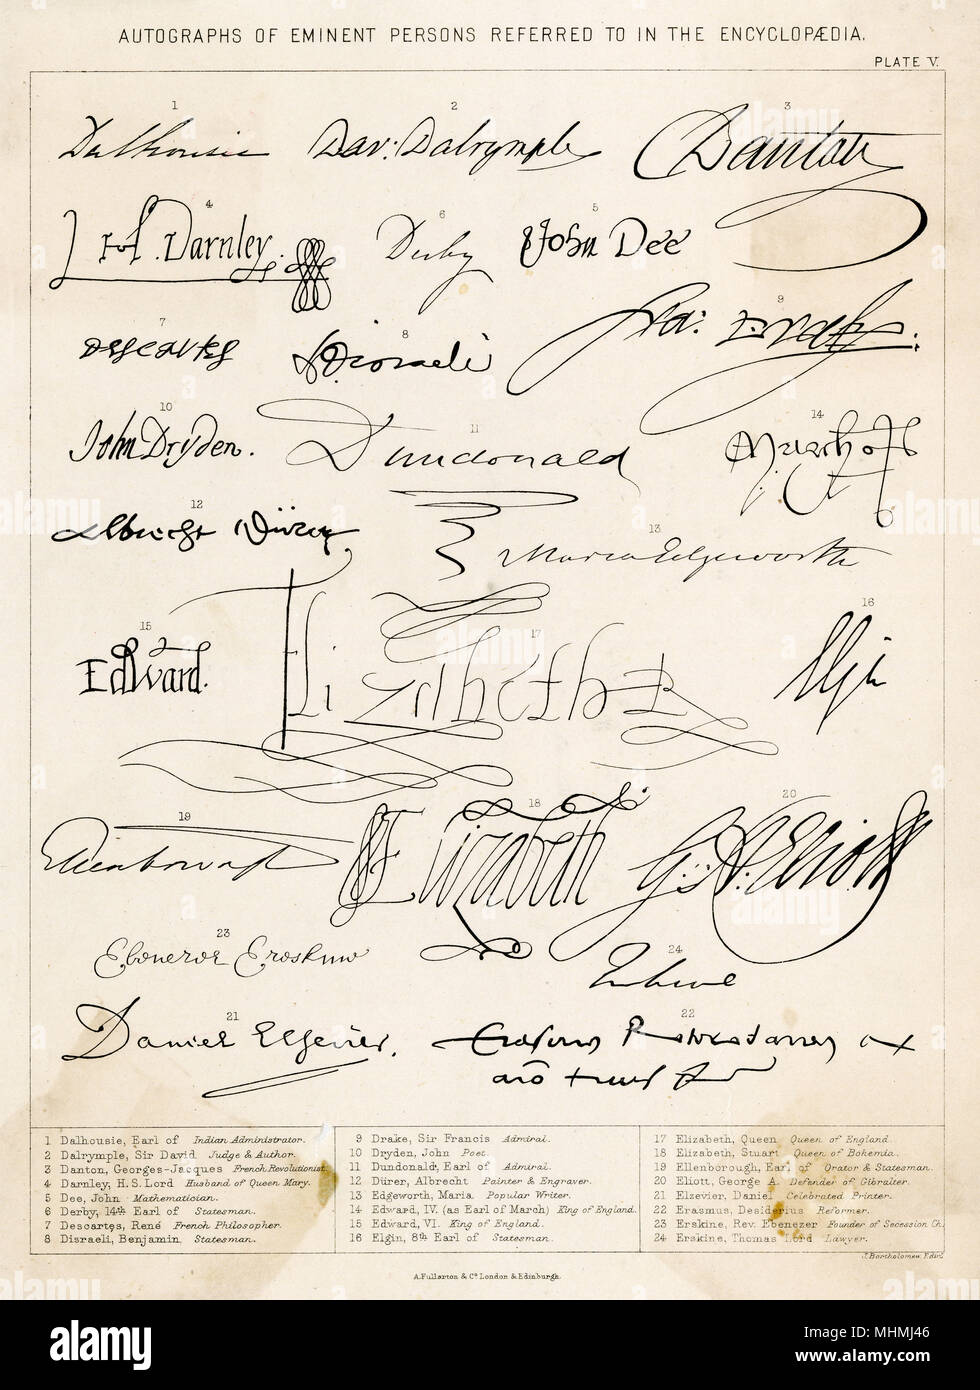 AUTOGRAPHS OF EMINENT PERSONS REFERRED TO IN THE ENCYCLOPÆDIA.
PLATE V.
1 2 3
Dalhousie Dav: Dalrymple Danton
4 6 5
H Darnley. Derby John Dee
7 8 9
Descartes Disraeli Fra: Drake
10 11 14
John Dryden. Dundonald
12 13
Albrecht Dürer Maria Edgeworth
15 17 16
Edward. Elizabeth R Elgin
19 18 20
Ellenborough Elizabeth G: A: Eliott
23 24
Ebenezer Erskine Erskine
21 22
Daniel Elzevier. Erasmus Roterodamus
1 Dalhousie, Earl of Indian Administrator.
2 Dalrymple, Sir David Judge & Author.
3 Danton, Georges-Jacques French Revolutionist
4 Darnley, H.S. Lord Husband of Queen Mary.
5 Dee, John Mathematician.
6 Derby, 14th Earl of Statesman.
7 Descartes, René French Philosopher.
8 Disraeli, Benjamin Statesman.
9 Drake, Sir Francis Admiral.
10 Dryden, John Poet.
11 Dundonald, Earl of Admiral.
12 Dürer, Albrecht Painter & Engraver.
13 Edgeworth, Maria Popular Writer.
14 Edward, IV. (as Earl of March) King of England.
15 Edward, VI. King of England.
16 Elgin, 8th Earl of Statesman.
17 Elizabeth, Queen Queen of England
18 Elizabeth, Stuart Queen of Bohemia.
19 Ellenborough, Earl of Orator & Statesman.
20 Eliott, George A. Defender of Gibralter.
21 Elzevier, Daniel Celebrated Printer.
22 Erasmus, Desiderius Reformer.
23 Erskine, Rev. Ebenezer Founder of Secession Ch.
24 Erskine, Thomas Lord Lawyer.
J. Bartholomew, Edinr.
A. Fullarton & Co. London & Edinburgh.
alamy
Image ID: MHMJ46
www.alamy.com